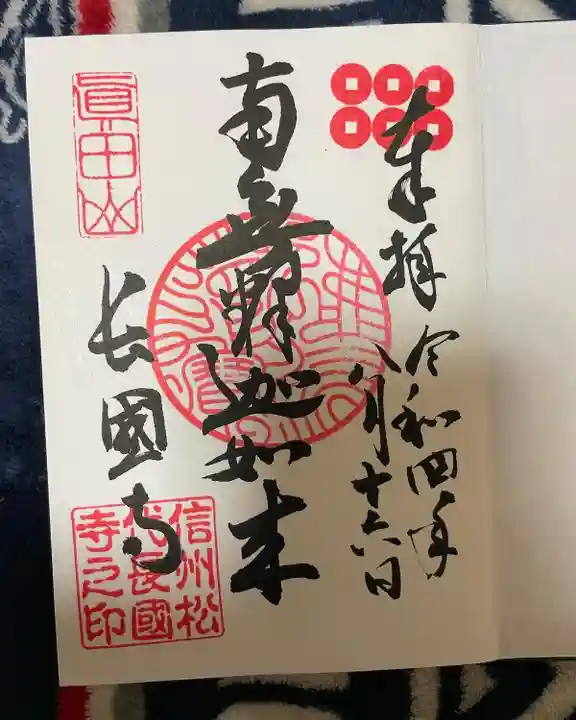 奉拝
令和四年
八月十六日
南無釋迦如来
眞田山
長國寺
信州松
代長國
寺之印